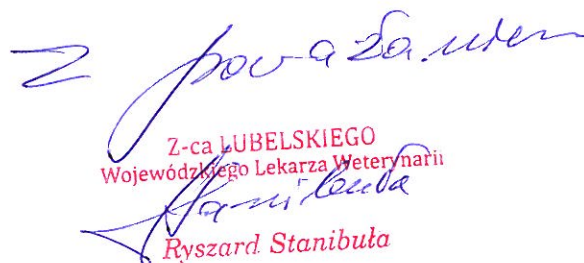 Z poważaniem
Z-ca LUBELSKIEGO
Wojewódzkiego Lekarza Weterynarii
Stanibuła
Ryszard Stanibuła